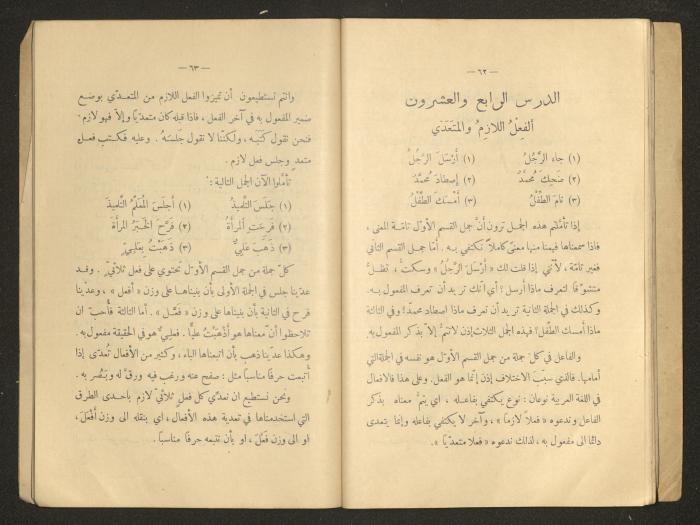 — ٦٢ —
الدرس الرابع والعشرون
الفِعْلُ اللازِمُ والمُتَعَدّي
(١) جاءَ الرَّجُلُ (١) أَرْسَلَ الرَّجُلُ
(٢) ضَحِكَ مُحمَّدٌ (٢) إصطادَ مُحمَّدٌ
(٣) نامَ الطِّفْلُ (٣) أمْسَكَ الطِّفْلُ
إذا تأمّلتم هذه الجمل ترون أنَّ جمل القسم الأوّل تامّة المعنى ،
فاذا سمعناها فهمنا منها معنىً كاملاً نكتفي به . أمّا جمل القسم الثاني
فغير تامّة ، لأنّني إذا قلت لك « أرْسَلَ الرَّجُلُ » وسكتُّ ، تظلّ
متشوّقاً لتعرف ماذا أرسل ? أي انّك تريد أن تعرف المفعول به .
وكذلك في الجملة الثانية تريد أن تعرف ماذا اصطاد محمد? وفي الثالثة
ماذا أمسك الطفل? فهذه الجمل الثلاث إذن لا تتمُّ إلاّ بذكر المفعول به .
والفاعل في كلّ جملة من جمل القسم الأوّل هو نفسه في الجملة التي
أمامها. فالذي سبّب الاختلاف إذن إنّما هو الفعل. وعلى هذا فالافعال
في اللغة العربية نوعان : نوع يكتفي بفاعله ، أي يتمُّ معناه بذكر
الفاعل وندعوه « فعلاً لازماً » ، وآخر لا يكتفي بفاعله وإنما يتعدى
دائماً الى مفعول به ، لذلك ندعوه « فعلا متعدّيا » .
— ٦٣ —
وانتم تستطيعون أن تميزوا الفعل اللازم من المتعدّي بوضع
ضمير المفعول به في آخر الفعل ، فاذا قبله كان متعدّياً وإلاّ فهو لازم .
فنحن نقول كَتَبَه ، ولكنّنا لا نقول جَلسَهُ . وعليه فكتب فعل
متعدٍ وجلس فعل لازم .
تأمّلوا الآن الجمل التالية :
(١) جَلَسَ التِّلميذُ (١) أَجلَسَ المُعَلِّمُ التِّلميذَ
(٢) فَرِحَتِ المرأةُ (٢) فَرَّحَ الخَبَرُ المرأةَ
(٣) ذَهَبَ عَلِيٌّ (٣) ذَهَبْتُ بِعَلِيٍّ
كلّ جملة من جمل القسم الأوّل تحتوي على فعل ثلاثيّ . وقد
عدّينا جلس في الجملة الأولى بأن بنيناها على وزن « أفعل » ، وعدّينا
فرح في الثانية بأن بنيناها على وزن « فعَّل » . أما الثالثة فأحبّ ان
تلاحظوا أنّ معناها هو أذْهَبْتُ عليّاً . فعليّ هو في الحقيقة مفعول به .
وهكذا عدّينا ذهب بأن اتبعناها الباء ، وكثير من الأفعال تُعدّى إذا
أُتبعت حرفاً مناسباً مثل : صفح عنه ورغب فيه ورقّ له وبَصُر به .
ونحن نستطيع ان نعدّي كل فعلٍ ثلاثيّ لازم باحدى الطرق
التي استخدمناها في تعدية هذه الأفعال ، اي بنقله الى وزن أفْعَلَ،
او الى وزن فَعَّلَ ، او بأن نتبعه حرفاً مناسباً .